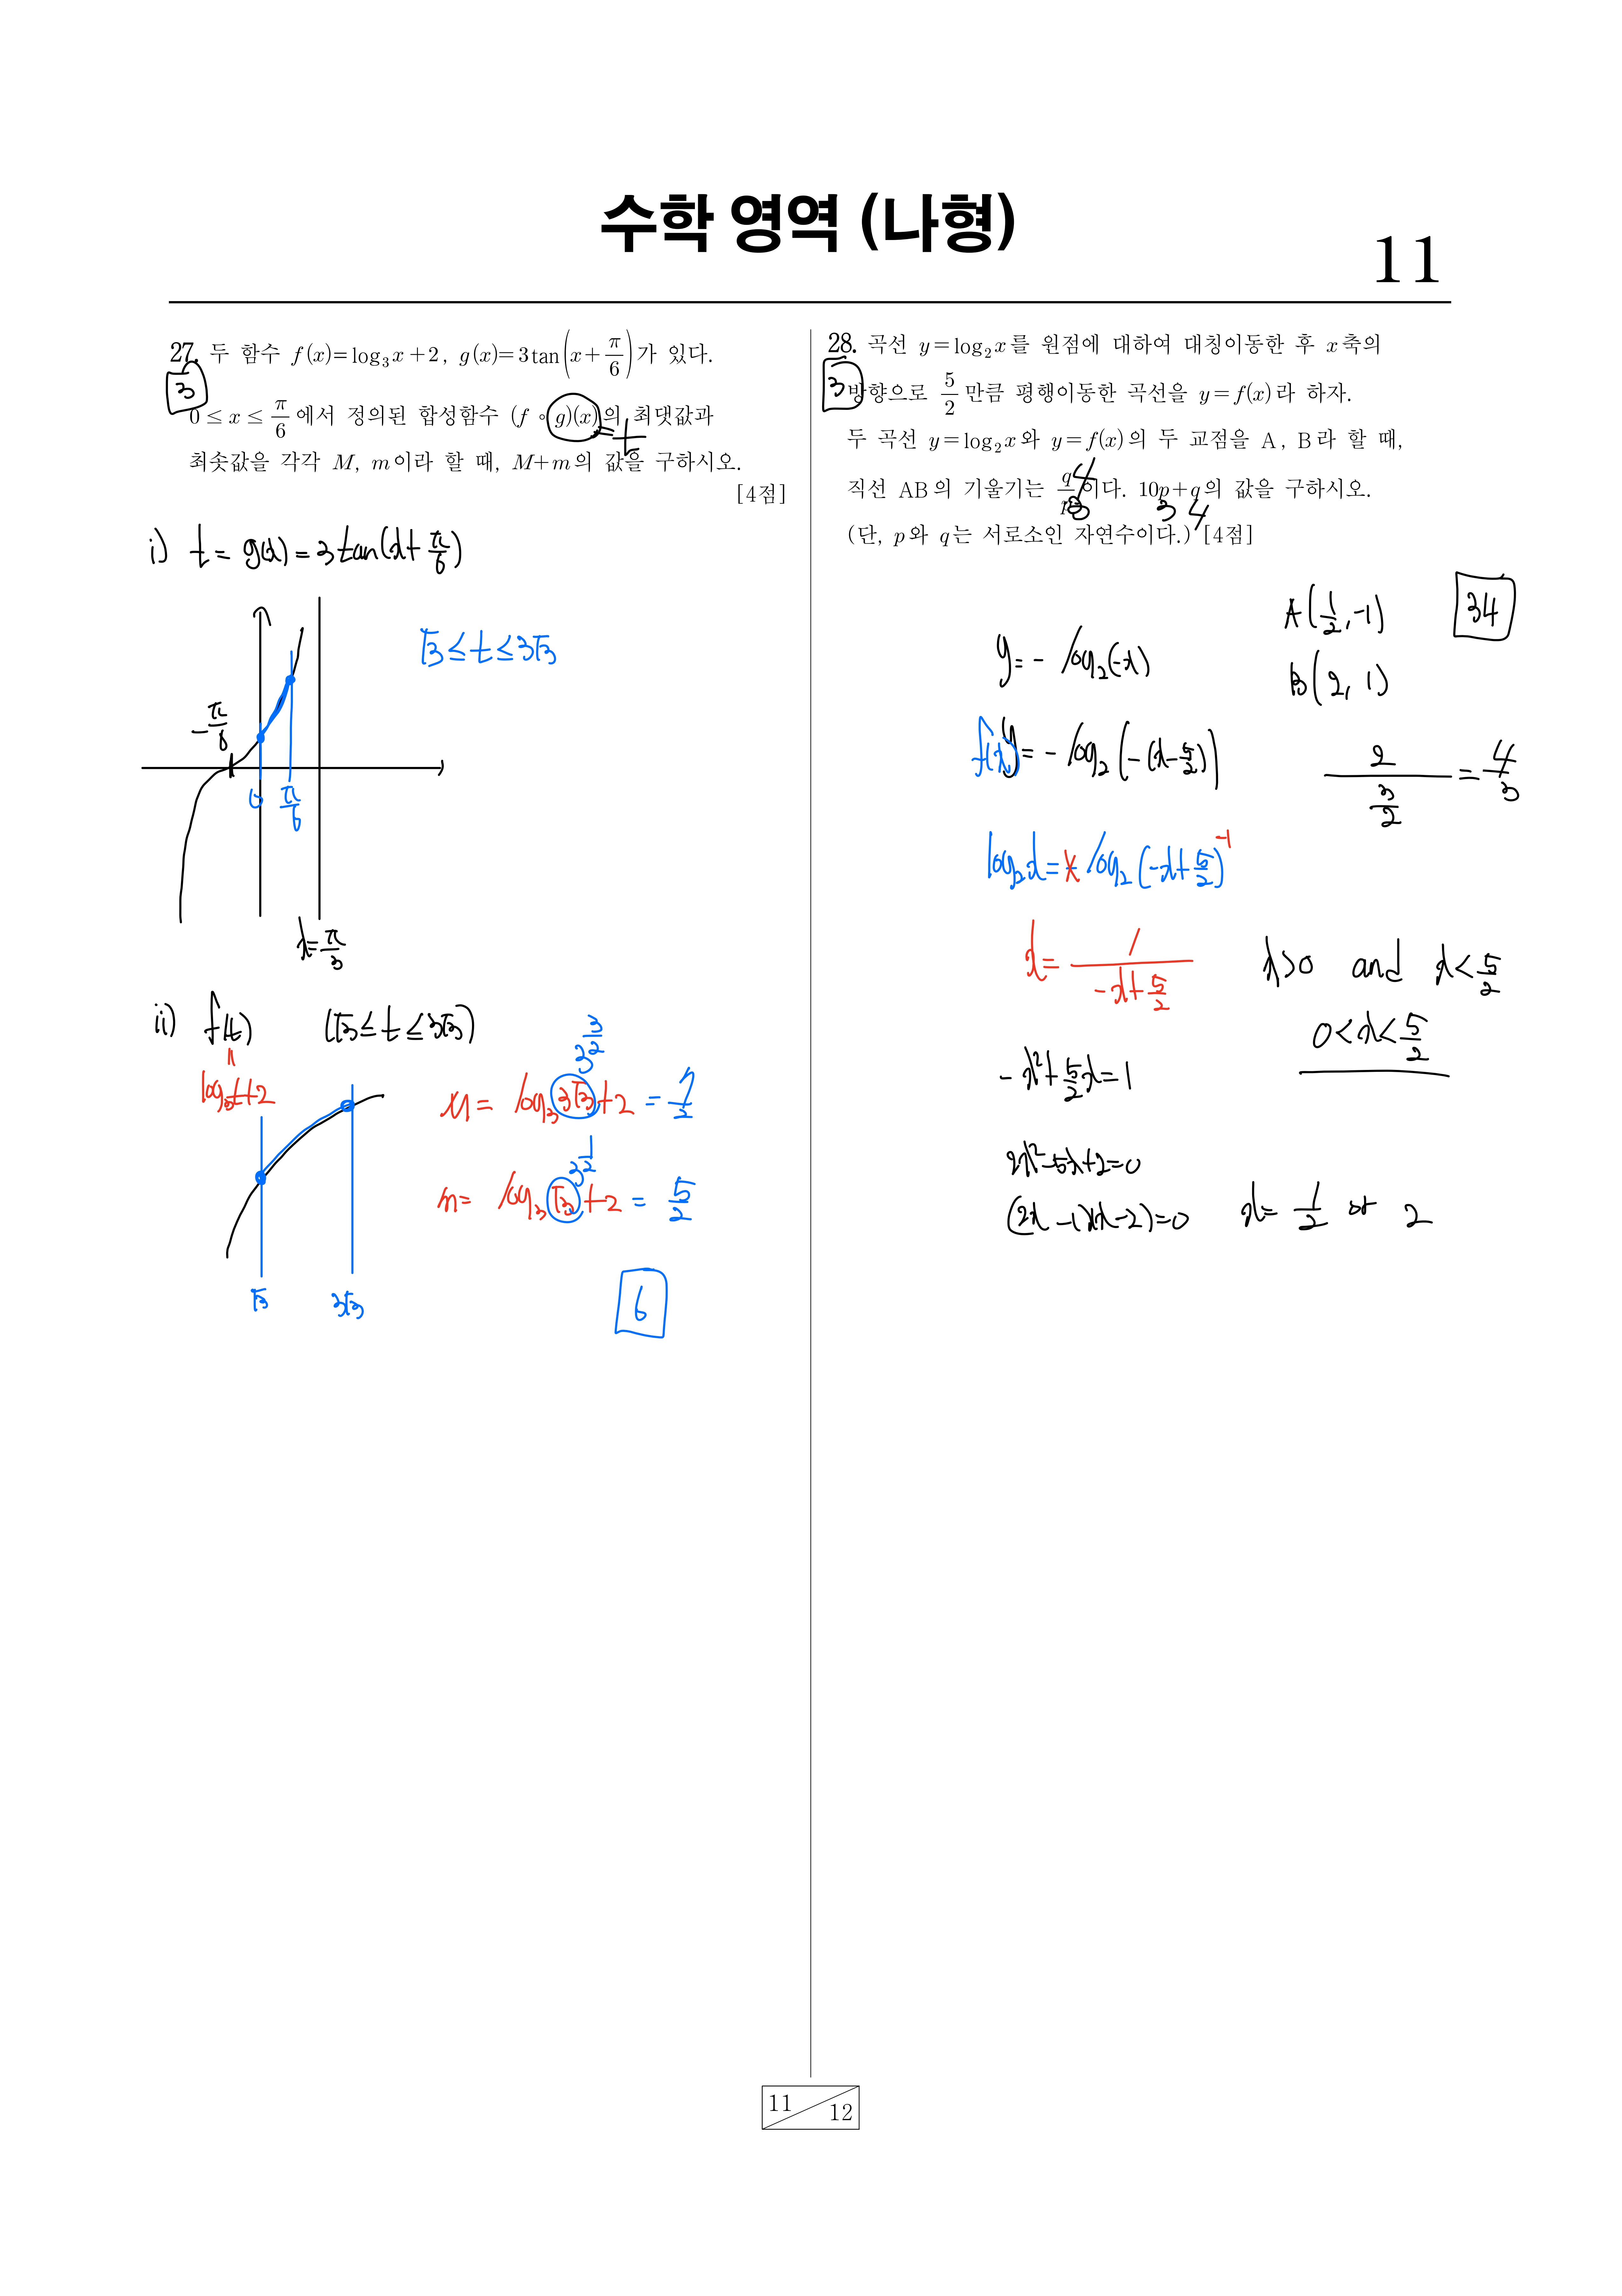 수학 영역 (나형)
11
27. 두 함수 f(x)=log₃x+2, g(x)=3tan(x+π/6)가 있다.
3
0≤x≤π/6에서 정의된 합성함수 (f∘g)(x)의 최댓값과
=t
최솟값을 각각 M, m이라 할 때, M+m의 값을 구하시오.
[4점]
i) t = g(x) = 3tan(x+π/6)
√3 ≤ t ≤ 3√3
-π/6
0 π/6
x=π/3
ii) f(t) (√3 ≤ t ≤ 3√3)
=
log₃t+2
3^(3/2)
M = log₃3√3+2 = 7/2
3^(1/2)
m = log₃√3+2 = 5/2
√3 3√3
6
28. 곡선 y=log₂x를 원점에 대하여 대칭이동한 후 x축의
3
방향으로 5/2만큼 평행이동한 곡선을 y=f(x)라 하자.
두 곡선 y=log₂x와 y=f(x)의 두 교점을 A, B라 할 때,
직선 AB의 기울기는 q/p이다. 10p+q의 값을 구하시오.
4
3 3 4
(단, p와 q는 서로소인 자연수이다.) [4점]
A(1/2, -1)
34
y = -log₂(-x)
B(2, 1)
f(x) y = -log₂(-(x-5/2))
2/(3/2) = 4/3
log₂x = log₂(-x+5/2)^-1
x = 1/(-x+5/2)
x>0 and x<5/2
0<x<5/2
-x²+5/2x=1
2x²-5x+2=0
(2x-1)(x-2)=0 x=1/2 or 2
11
12